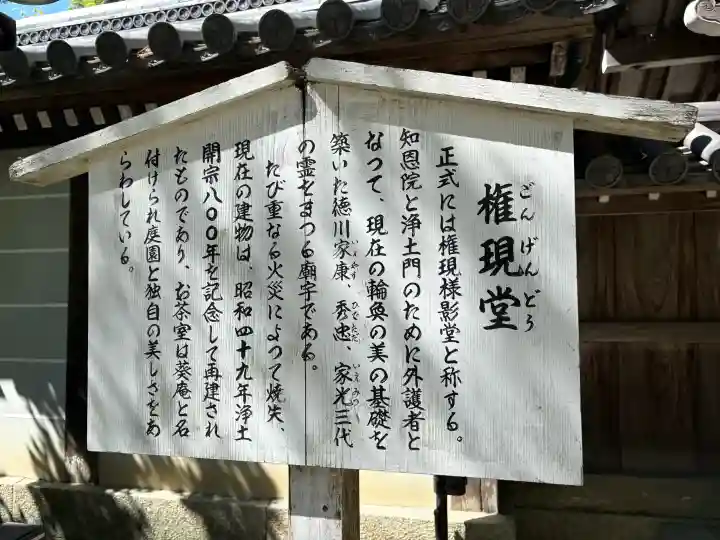 権現堂
ごんげんどう
正式には権現様影堂と称する。
知恩院と浄土門のために外護者と
なって、現在の輪奐の美の基礎を
築いた徳川家康、秀忠、家光三代
いえやす ひでただ いえみつ
の霊をまつる廟宇である。
たび重なる火災によって焼失、
現在の建物は、昭和四十九年浄土
開宗八〇〇年を記念して再建され
たものであり、お茶室は葵庵と名
付けられ庭園と独自の美しさをあ
らわしている。